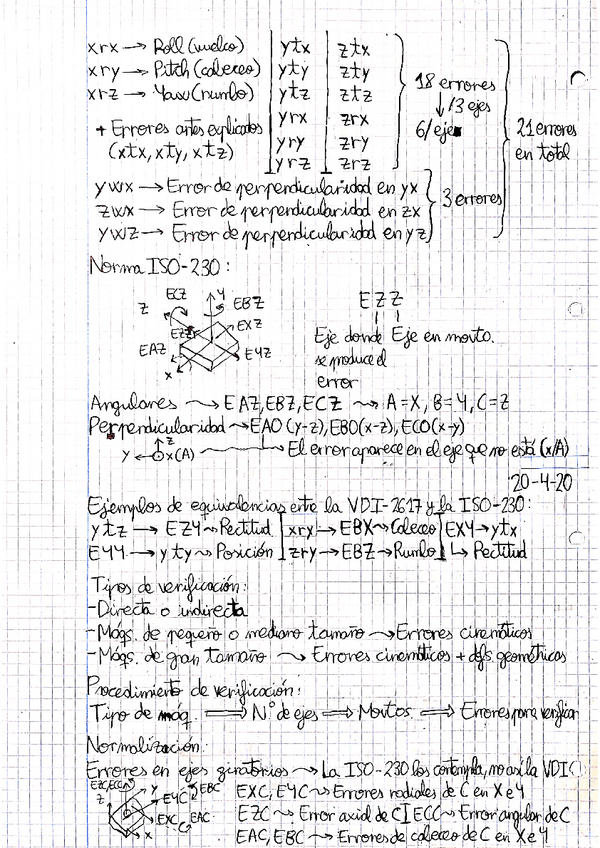 xrx → Roll (vuelco) | ytx | ztx
xry → Pitch (cabeceo) | yty | zty
xrz → Yaw (rumbo) | ytz | ztz
18 errores
↓/3 ejes
6/eje
+ Errores antes explicados | yrx | zrx
(xtx, xty, xtz) | yry | zry
yrz | zrz
21 errores
en total
ywx → Error de perpendicularidad en yx
zwx → Error de perpendicularidad en zx
ywz → Error de perpendicularidad en yz
3 errores
Norma ISO-230:
ECZ Y EBZ
Z
EZZ EXZ
EAZ EYZ
X
EZZ
Eje donde Eje en movto.
se produce el
error
Angulares ⟿ EAZ, EBZ, ECZ ⟿ A=X, B=Y, C=Z
Perpendicularidad ⟿ EAO (y-z), EBO (x-z), ECO (x-y)
z
y ← x(A) El error aparece en el eje que no está (x/A)
20-4-20
Ejemplos de equivalencias entre la VDI-2617 y la ISO-230:
ytz → EZY ⟿ Rectitud | xry → EBX ⟿ Cabeceo | EXY → ytx
EYY → yty ⟿ Posición | zry → EBZ ⟿ Rumbo | ↳ Rectitud
Tipos de verificación:
-Directa o indirecta
-Máqs. de pequeño o mediano tamaño ⟿ Errores cinemáticos
-Máqs. de gran tamaño ⟿ Errores cinemáticos + defs. geométricas
Procedimiento de verificación:
Tipo de máq. ⟹ Nº de ejes ⟹ Movtos ⟹ Errores para verificar
Normalización:
Errores en ejes giratorios ⟿ La ISO-230 los contempla, no así la VDI
EZC, ECC Y EBC
Z EYC
EXC EAC
X
EXC, EYC ⟿ Errores radiales de C en X e Y
EZC ⟿ Error axial de C | ECC ⟿ Error angular de C
EAC, EBC ⟿ Errores de cabeceo de C en X e Y